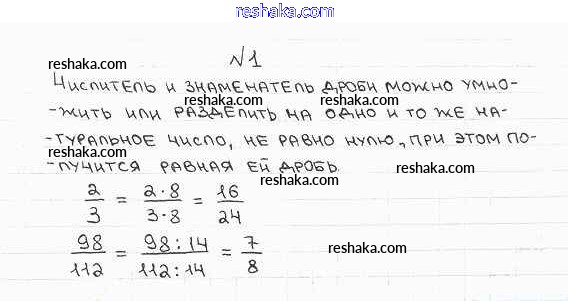 reshaka.com
№1
reshaka.com
reshaka.com
Числитель и знаменатель дроби можно умно-
reshaka.com
reshaka.com
-жить или разделить на одно и то же на-
-туральное число, не равно нулю, при этом по-
reshaka.com
-лучится равная ей дробь.
reshaka.com
reshaka.com
2/3 = 2·8/3·8 = 16/24
98/112 = 98:14/112:14 = 7/8
reshaka.com